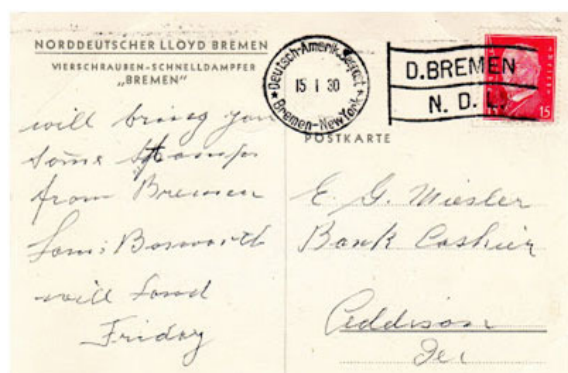 NORDDEUTSCHER LLOYD BREMEN
VIERSCHRAUBEN-SCHNELLDAMPFER
„BREMEN”
Deutsch-Amerik. Seepost
15 1 30
Bremen-New York
D. BREMEN
N. D. L.
15
POSTKARTE
will bring you
some stamps
from Bremen
Bosworth
will land
Friday
E. G. Miesler
Bank Cashier
Addison